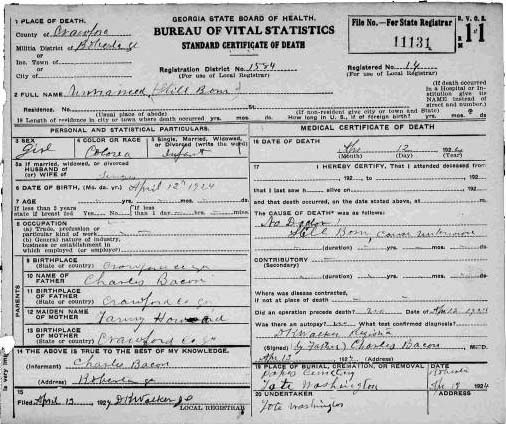 GEORGIA STATE BOARD OF HEALTH.
BUREAU OF VITAL STATISTICS
STANDARD CERTIFICATE OF DEATH
File No.—For State Registrar
11131
1 PLACE OF DEATH.
County of Crawford
Militia District of
Inc. Town of
City of
Registration District No. 1584
(For use of Local Registrar)
Registered No. 14
(For use of Local Registrar)
(If death occurred in a Hospital or Institution give its NAME instead of street and number.)
2 FULL NAME Unnamed (Still Born)
Residence. No. St.
(Usual place of abode) (If non-resident give city or town and State)
18 Length of residence in city or town where death occurred yrs. mos. ds. How long in U. S., if of foreign birth? yrs. mos. ds.
PERSONAL AND STATISTICAL PARTICULARS.
3 SEX
Girl
4 COLOR OR RACE
Colored
5 Single, Married, Widowed, or Divorced (write the word)
Infant
5a If married, widowed, or divorced
HUSBAND of
(or) WIFE of
6 DATE OF BIRTH, (Mo. da. yr.) April 12 1924
7 AGE yrs. mos. ds.
If less than 2 years state if breast fed Yes No
If less than 1 day hrs. min.
8 OCCUPATION
(a) Trade, profession or particular kind of work
(b) General nature of industry, business or establishment in which employed (or employer)
PARENTS
9 BIRTHPLACE
(State or country) Crawford Co Ga
10 NAME OF FATHER Charles Bacon
11 BIRTHPLACE OF FATHER
(State or country) Crawford Co Ga
12 MAIDEN NAME OF MOTHER Fanny Howard
13 BIRTHPLACE OF MOTHER
(State or country) Crawford Co Ga
14 THE ABOVE IS TRUE TO THE BEST OF MY KNOWLEDGE.
(Informant) Charles Bacon
(Address)
15
Filed April 13 1924
LOCAL REGISTRAR
MEDICAL CERTIFICATE OF DEATH
16 DATE OF DEATH
12 192
(Month) (Day) (Year)
17 I HEREBY CERTIFY, That I attended deceased from
192 , to 192 ,
that I last saw h alive on 192 ,
and that death occurred, on the date stated above, at m.
The CAUSE OF DEATH* was as follows:
No Doctor
Still Born, Cause unknown
(duration) yrs. mos. ds.
CONTRIBUTORY
(Secondary)
(duration) yrs. mos. ds.
Where was disease contracted,
if not at place of death?
Did an operation precede death? Date of
Was there an autopsy? What test confirmed diagnosis?
(Signed) (by Father) Charles Bacon
192 (Address)
19 PLACE OF BURIAL, CREMATION, OR REMOVAL
Cemetery
Tate Washington
20 UNDERTAKER
Tate Washington